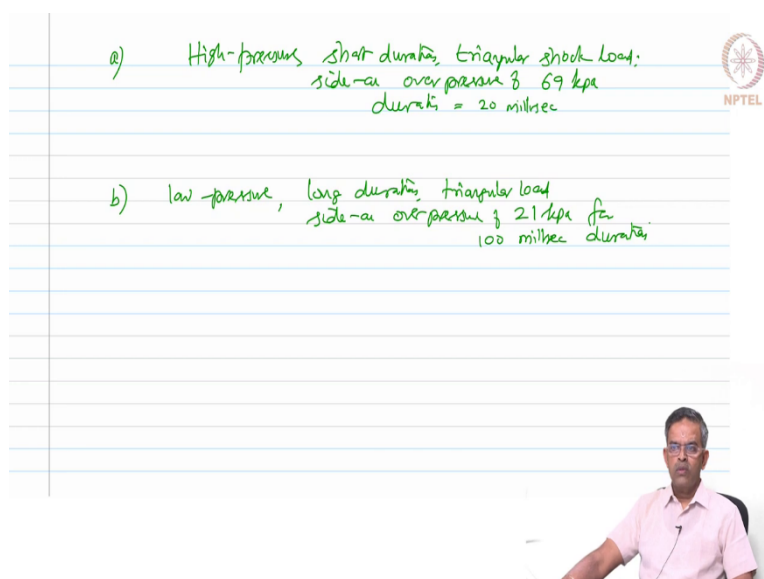 a) High-pressure short duration, triangular shock load:
side-on overpressure of 69 kpa
duration = 20 millisec
NPTEL
b) low-pressure, long duration, triangular load
side-on overpressure of 21 kpa for
100 millisec duration.